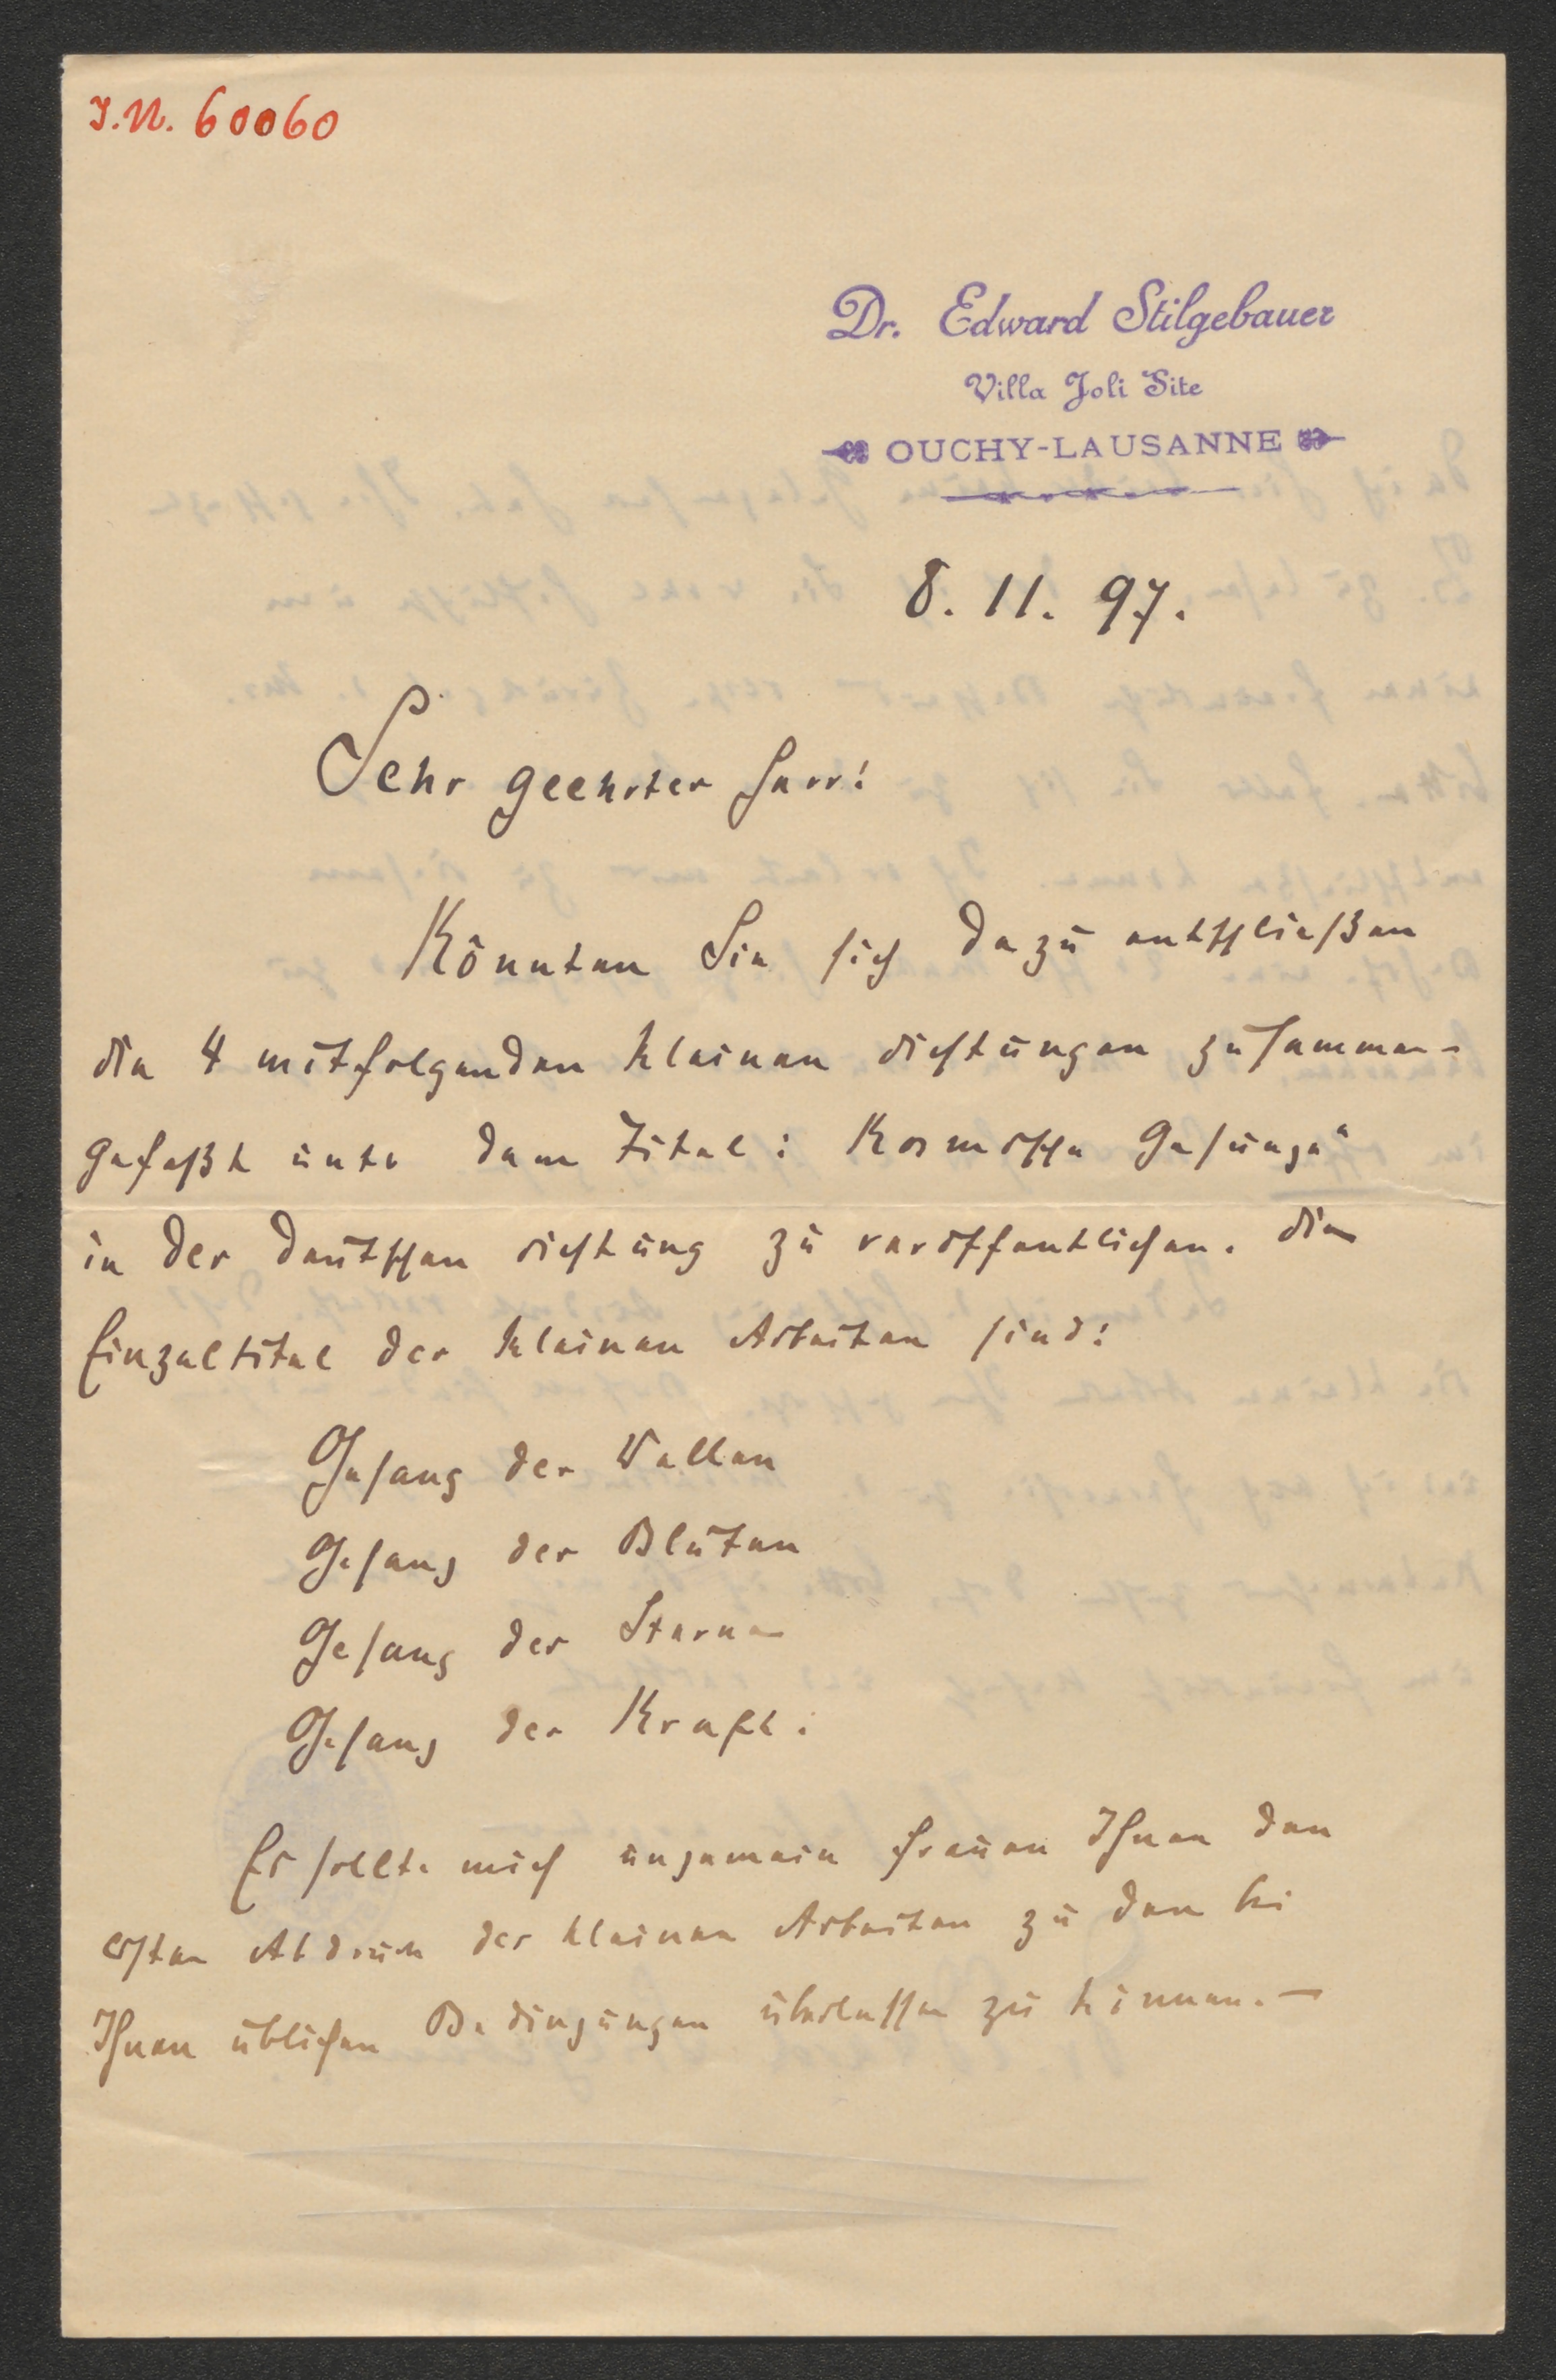 I.N. 60060
Dr. Edward Stilgebauer
Villa Joli Site
OUCHY-LAUSANNE
8. 11. 97.
Sehr geehrter Herr!
Könnten Sie sich dazu entschließen
die 4 mitfolgenden kleinen Dichtungen zusammen-
gefaßt unter dem Titel: Kosmische Gesänge"
in der Deutschen Dichtung zu veröffentlichen. Die
Einzeltitel der kleinen Arbeiten sind:
Gesang der Wellen
Gesang der Blüten
Gesang der Sterne
Gesang der Kraft.
Es sollte mich ungemein freuen Ihnen den
ersten Abdruck der kleinen Arbeiten zu den bei
Ihnen üblichen Bedingungen überlassen zu können. —